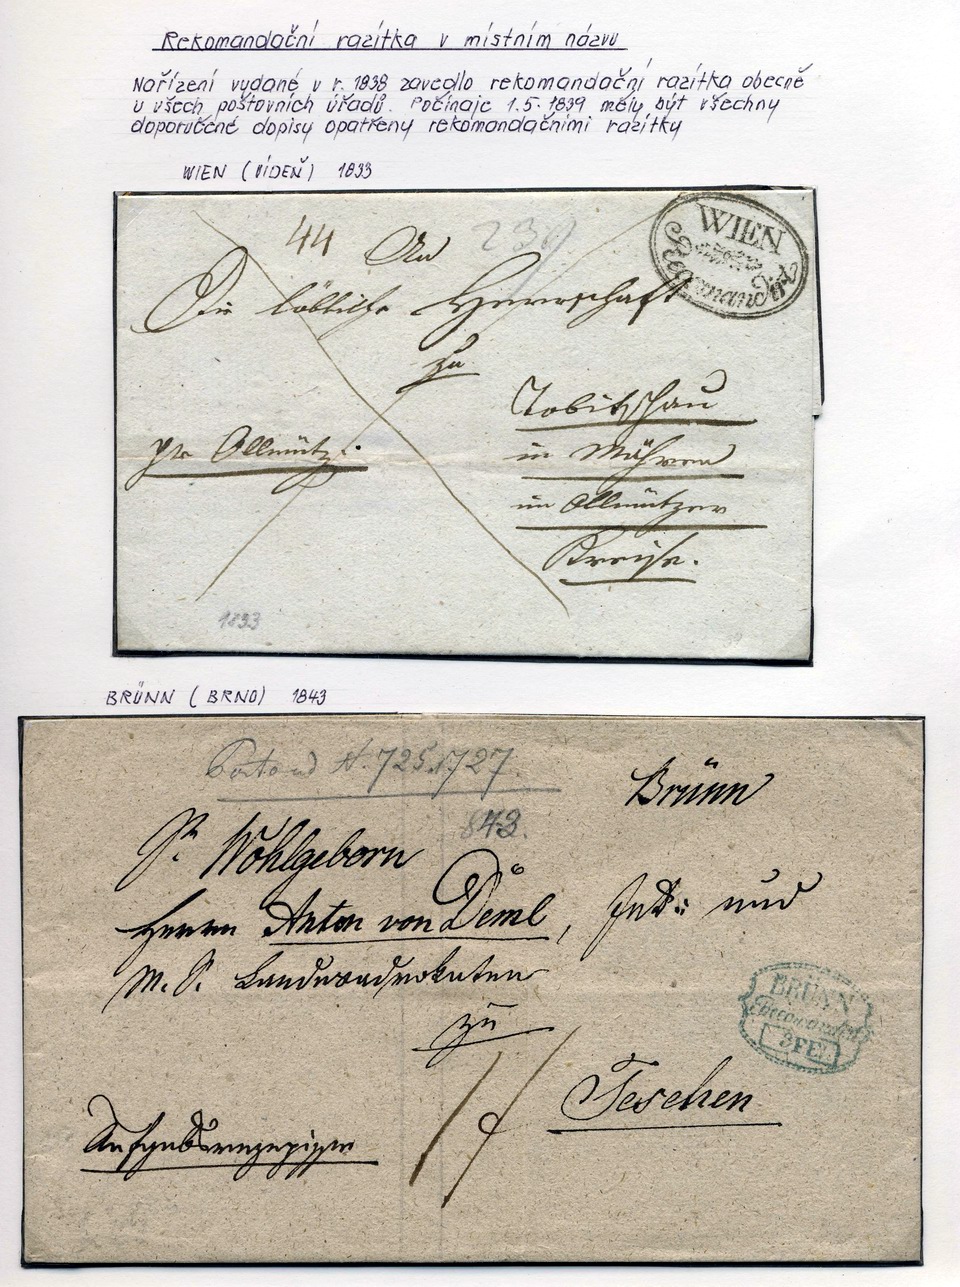 Rekomandační razítka v místním názvu
Nařízení vydané v r. 1838 zavedlo rekomandační razítka obecně
u všech poštovních úřadů. Počínaje 1.5. 1839 měly být všechny
doporučené dopisy opatřeny rekomandačními razítky
WIEN (VÍDEŇ) 1833
44
An
WIEN
Recomandirt
Die löbliche Herrschaft
zu
Tobitschau
pr Ollmütz
in Mähren
im Ollmützer
Kreise.
1833
BRÜNN (BRNO) 1843
N. 725.1727
843.
Brünn
Sr Wohlgeborn
Herrn Anton von Deml, und
M. S. Landesadvokaten
zu
BRÜNN
Recomandirt
3 FEB
Teschen